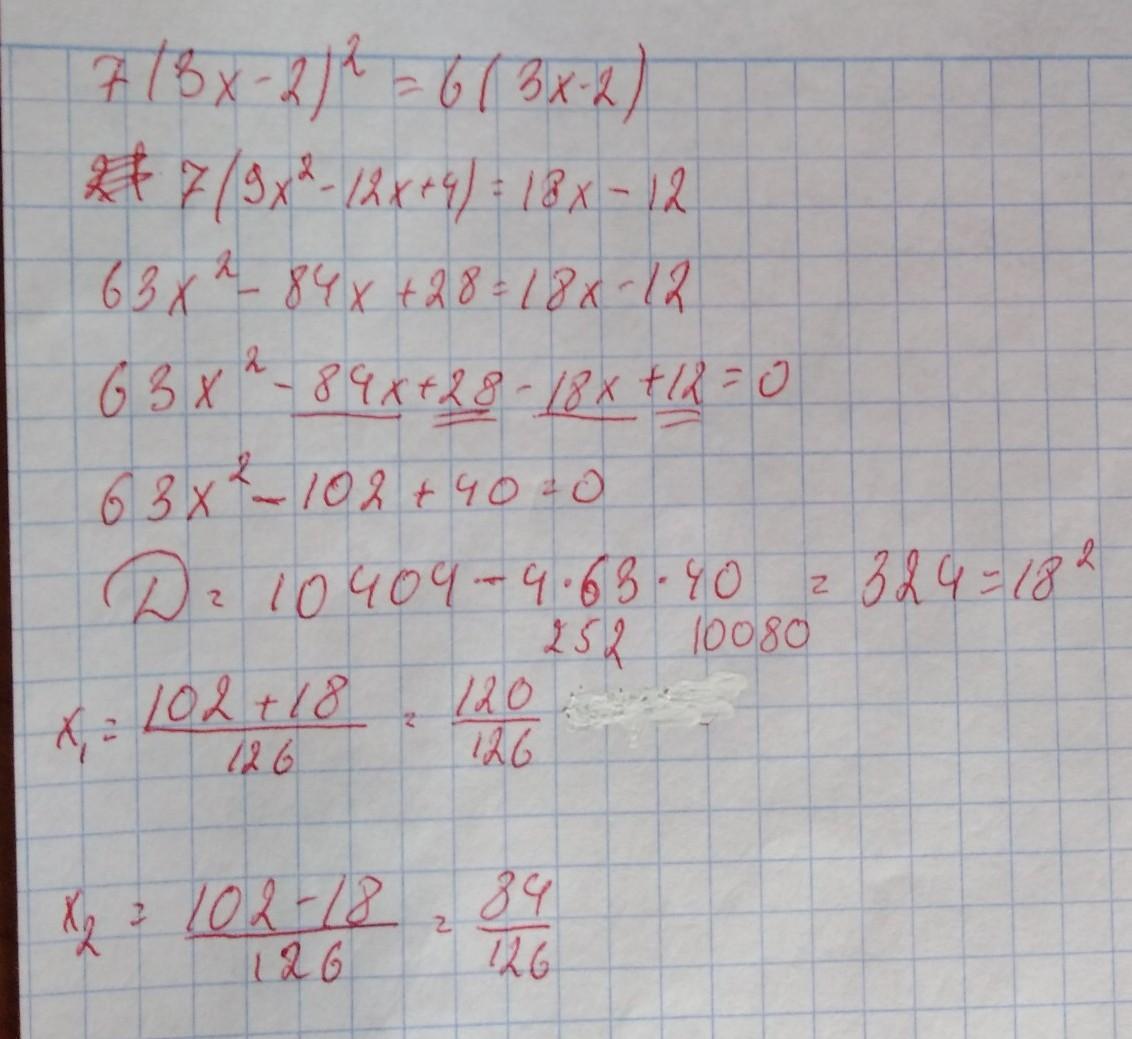 7(3x-2)² = 6(3x-2)
7(9x²-12x+4) = 18x-12
63x² - 84x + 28 = 18x - 12
63x² - 84x + 28 - 18x + 12 = 0
63x² - 102 + 40 = 0
D = 10404 - 4·63·40 = 324 = 18²
252 10080
x₁ = (102+18)/126 = 120/126
x₂ = (102-18)/126 = 84/126